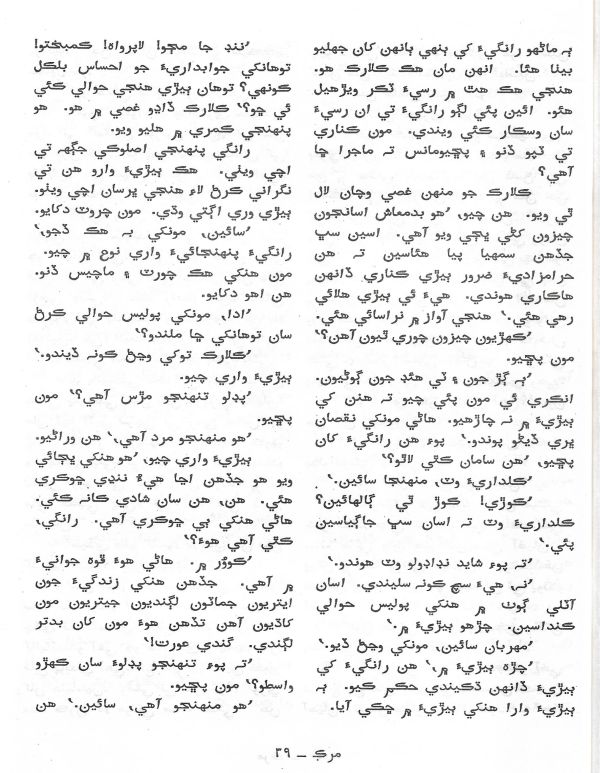 ٻه ماڻهو رانگيءَ کي ٻنهي ٻانهن کان جهليو
بيٺا هئا. انهن مان هڪ ڪلارڪ هو.
هنجي هڪ هٿ ۾ رسيءَ ٽڪر ويڙهيل
هئو. ائين پئي لڳو رانگيءَ تي ان رسيءَ
سان وسڪار ڪئي ويندي. مون ڪناري
تي ٽپو ڏنو ۽ پڇيومانس ته ماجرا ڇا
آهي؟
ڪلارڪ جو منهن غصي وچان لال
ٿي ويو. هن چيو، ’هو بدمعاش اسانجون
چيزون کڻي ڀڄي ويو آهي. اسين سڀ
جڏهن سمهيا پيا هئاسين ته هن
حرامزاديءَ ضرور ٻيڙي ڪناري ڏانهن
هاڪاري هوندي. هيءَ ئي ٻيڙي هلائي
رهي هئي.‘ هنجي آواز ۾ نراسائي هئي.
’ڪهڙيون چيزون چوري ٿيون آهن؟‘
مون پڇيو.
’ٻه ڳڙ جون ۽ ٽي هئڊ جون ڳوڻيون.
انڪري ئي مون پئي چيو ته هنن کي
ٻيڙيءَ ۾ نه چاڙهيو. هاڻي مونکي نقصان
ڀري ڏيڻو پوندو.‘ پوءِ هن رانگيءَ کان
پڇيو، ’هن سامان ڪٿي لاٿو؟‘
’ڪلداريءَ وٽ، منهنجا سائين.‘
’ڪوڙي! ڪوڙ ٿي ڳالهائين؟
ڪلداريءَ وٽ ته اسان سڀ جاڳياسين
پئي.‘
’ته پوءِ شايد نڊاڊولو وٽ هوندو.‘
’نه، هيءَ سچ ڪونه سليندي. اسان
آٽلي ڳوٺ ۾ هنکي پوليس حوالي
ڪنداسين. چڙهو ٻيڙيءَ ۾.‘
’مهربان سائين، مونکي وڃڻ ڏيو.‘
’چڙهه ٻيڙيءَ ۾،‘ هن رانگيءَ کي
ٻيڙيءَ ڏانهن ڌڪيندي حڪم ڪيو. ٻه
ٻيڙيءَ وارا هنکي ٻيڙيءَ ۾ ڇڪي آيا.
’ننڊ جا مڃو! لاپرواهه! ڪمبختو!
توهانکي جوابداريءَ جو احساس بلڪل
ڪونهي؟ توهان ٻيڙي هنجي حوالي ڪئي
ئي ڇو؟‘ ڪلارڪ ڏاڍو غصي ۾ هو. هو
پنهنجي ڪمري ۾ هليو ويو.
رانگي پنهنجي اصلوڪي جڳهه تي
اچي ويٺي. هڪ ٻيڙيءَ وارو هن تي
نگراني ڪرڻ لاءِ هنجي ڀرسان اچي ويٺو.
ٻيڙي وري اڳتي وڌي. مون چروٽ دکايو.
’سائين، مونکي به هڪ ڏجو،‘
رانگيءَ پنهنجائيءَ واري نوع ۾ چيو.
مون هنکي هڪ چروٽ ۽ ماچيس ڏنو.
هن اهو دکايو.
’ادا، مونکي پوليس حوالي ڪرڻ
سان توهانکي ڇا ملندو؟‘
’ڪلارڪ توکي وڃڻ ڪونه ڏيندو.‘
ٻيڙيءَ واري چيو.
’پڊلو تنهنجو مڙس آهي؟‘ مون
پڇيو.
’هو منهنجو مرد آهي،‘ هن وراڻيو.
ٻيڙيءَ واري چيو، ’هو هنکي ڀڄائي
ويو هو جڏهن اڃا هيءَ ننڍي ڇوڪري
هئي. هن، هن سان شادي ڪانه ڪئي.
هاڻي هنکي ٻي ڇوڪري آهي. رانگي،
ڪٿي آهي هوءَ؟‘
’ڪوڙو ۾. هاڻي هوءَ ڦوهه جوانيءَ
۾ آهي. جڏهن هنکي زندگيءَ جون
ايتريون چماٽون لڳنديون جيتريون مون
کاڌيون آهن تڏهن هوءَ مون کان بدتر
لڳندي. گندي عورت!‘
’ته پوءِ تنهنجو پڊلوءَ سان ڪهڙو
واسطو؟‘ مون پڇيو.
’هو منهنجو آهي، سائين.‘ هن
مرڪ ــ ٣٩